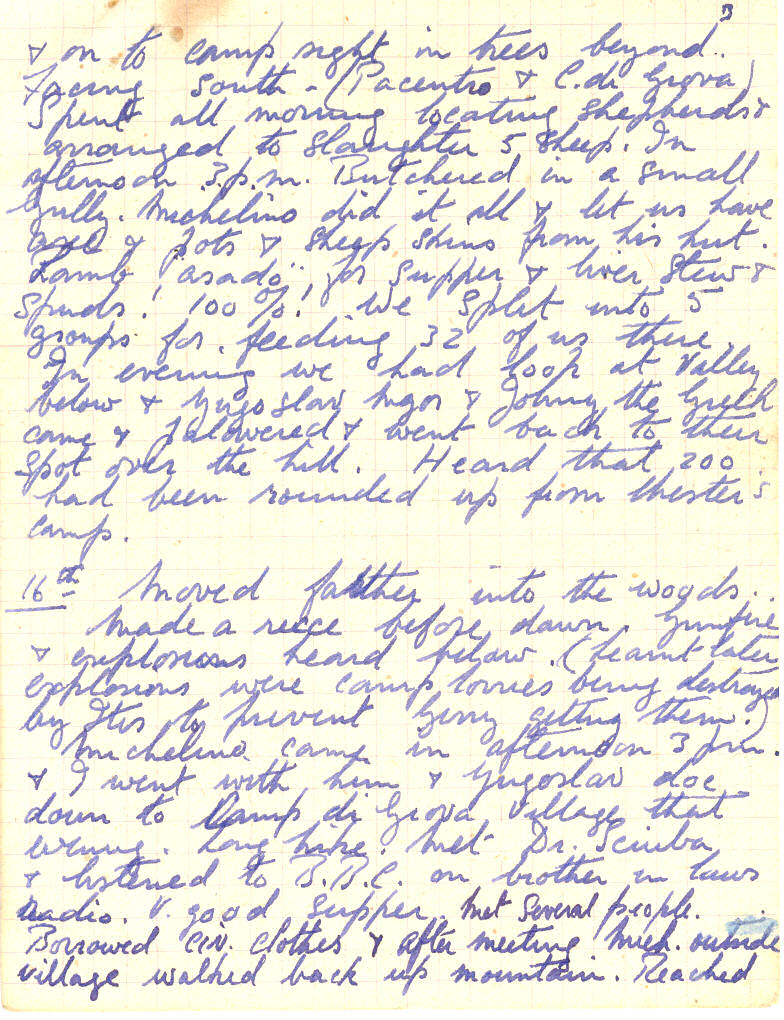 B
& on to camp right in trees beyond..
Facing South - (Pacentro & C. di Giova)
Spent all morning locating shepherds &
arranged to slaughter 5 sheep. In
afternoon 3.p.m. Butchered in a small
gully. Michelino did it all & let us have
axe & pots & sheep skins from his hut.
Lamb "asado" for supper & liver stew &
spuds! 100%! We split into 5
groups for feeding 32 of us there.
In evening we had look at valley
below & Yugoslav Major & Johnny the Greek
came & palavered & went back to their
spot over the hill. Heard that 200
had been rounded up from Chester's
camp.
16th Moved farther into the woods..
Made a recce before dawn. Gunfire
& explosions heard below. (learnt later
explosions were camp lorries being destroyed
by Itis to prevent Gerry getting them.)
Michelino came in afternoon 3 p.m.
& I went with him & Yugoslav doc
down to Camp di Giova village that
evening. Long hike. Met Dr. Sciuba
& listened to B.B.C. on brother in laws
radio. V. good supper. Met several people.
Borrowed civ. clothes & after meeting Mich. outside
village walked back up mountain. Reached